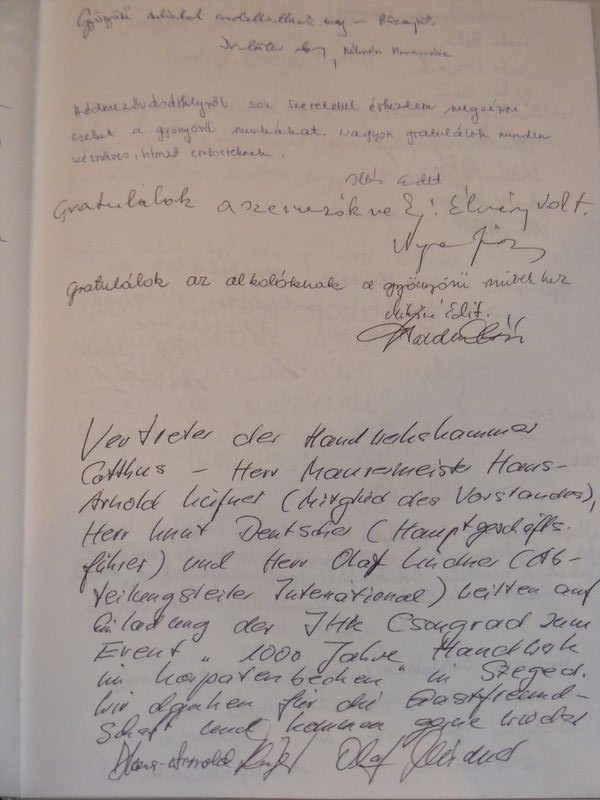 Gyögyösi
Dr
Hódmezővásárhelyről sok szeretettel érkeztem megnézni
ezeket a gyönyörű munkákat. Nagyon gratulálok minden
kézműves, hímző embereknek.
Illés Edit
Gratulálok a szervezőkne E! Élvény volt.
gratulálok az alkotóknak a gyönyörű művekhez
Edit.
Vertreter der Handwerkskammer
Cottbus – Herr Maurermeister Hans-
Arnold Käfner (Mitglied des Vorstandes),
Herr Knut Deutscher (Hauptgeschäfts-
führer) und Herr Olaf Lindner (Ab-
teilungsleiter International) weilten auf
Einladung der IHK Csongrad zum
Event „1000 Jahre Handwerk
im Karpatenbecken" in Szeged.
Wir danken für die Gastfreund-
schaft und kommen gerne wieder
Hans-Arnold Olaf Lindner